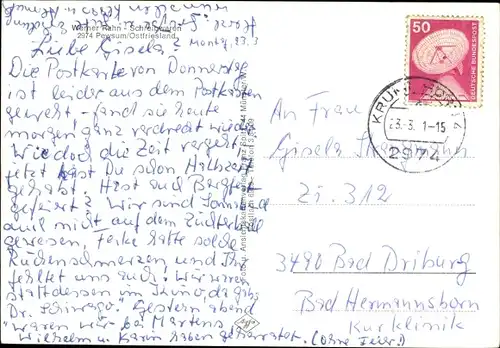 Werner Rahn - Schreibwaren
2974 Pewsum/Ostfriesland
Liebe Gisela! Montag, 23.3
Die Postkarte von Donnerstag
ist leider aus dem Postkasten
geweht - fand sie heute
morgen ganz verdreckt wieder
Wie doch die Zeit vergeht
jetzt hast Du schon Halbzeit
gehabt. Hast auch Bergfest
gefeiert? Wir sind Sonnabend
auch nicht auf dem
gewesen, hatte solche
Rückenschmerzen und Ihr
fehltet uns auch! Wir waren
stattdessen im Kino, da gabs
"Dr. Schiwago". Gestern abend
waren wir bei Martens
Wilhelm u. Karin haben geheiratet. (ohne Feier!)
50
DEUTSCHE BUNDESPOST
KRUMMHÖRN 1
23.-3. 1-15
2974
An Frau
Gisela
Zi. 312
3490 Bad Driburg
Bad Hermannsborn
Kurklinik